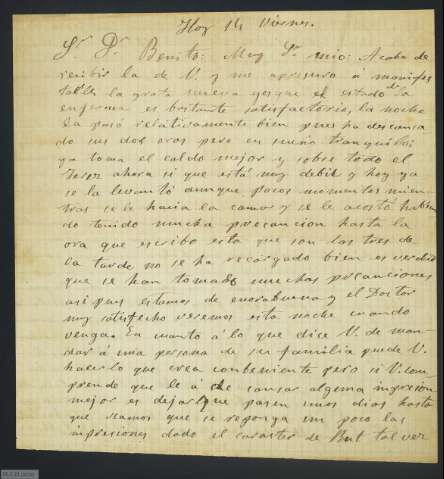 Hoy 14 Viernes.
Sr. Dn. Benito: Muy Sr. mio: Acabo de
recibir la de V. y me apresuro á manifes
tarle la grata nueva es que el estado de la
enferma es bastante satisfactorio, la noche
la pasó relativamente bien pues ha descansa
do sus dos oras pero en sueño tranquilo;
ya toma el caldo mejor y sobre todo el
Jerez ahora si que está muy debil y hoy ya
se la levantó aunque pocos momentos mien
tras se le hacia la cama y se le acostó habien
do tenido mucha precaucion hasta la
ora que escribo esta que son las tres de
la tarde no se ha recargado bien es verdad
que se han tomado muchas precauciones
asi pues estamos de enorabuena y el Doctor
muy satisfecho veremos esta noche cuando
venga. En cuanto á lo que dice V. de man
dar á una persona de su familia puede V.
hacer lo que crea conbeniente pero si V. com
prende que le á de causar alguna inpresion
mejor es dejarlo que pasen unos dias hasta
que veamos que se reponga un poco las
inpresiones dado el caracter de tal vez